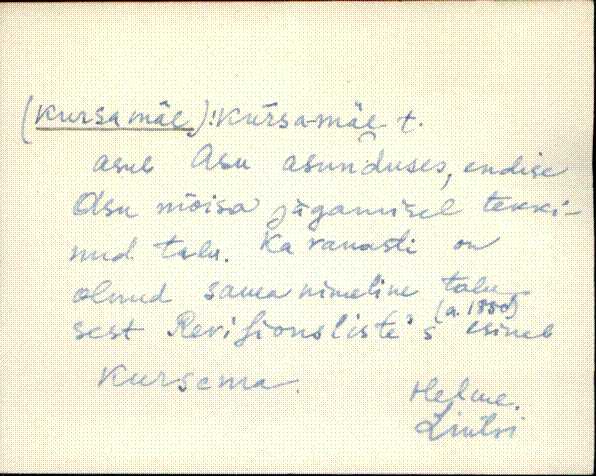 (Kursamäe): Kursa-mäe t.
asub Asu asunduses, endise
Asu mõisa jagamisel tekki-
nud talu. Ka vanasti on
olnud samanimeline talu
sest Revisionsliste's (a. 1850) esineb
Kursema.
Helme.